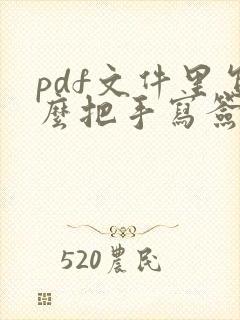 pdf文件里怎
麼把手寫簽
520農民